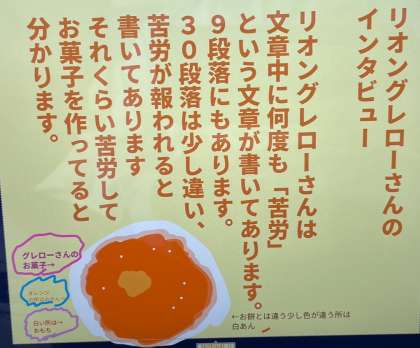 リオングレローさんの
インタビュー
リオングレローさんは
文章中に何度も「苦労」
という文章が書いてあります。
9段落にもあります。
30段落は少し違い、
苦労が報われると
書いてあります
それくらい苦労して
お菓子を作ってると
分かります。
グレローさんの
お菓子→
オレンジ
白い所は→
おもち
←お餅とは違う少し色が違う所は
白あん